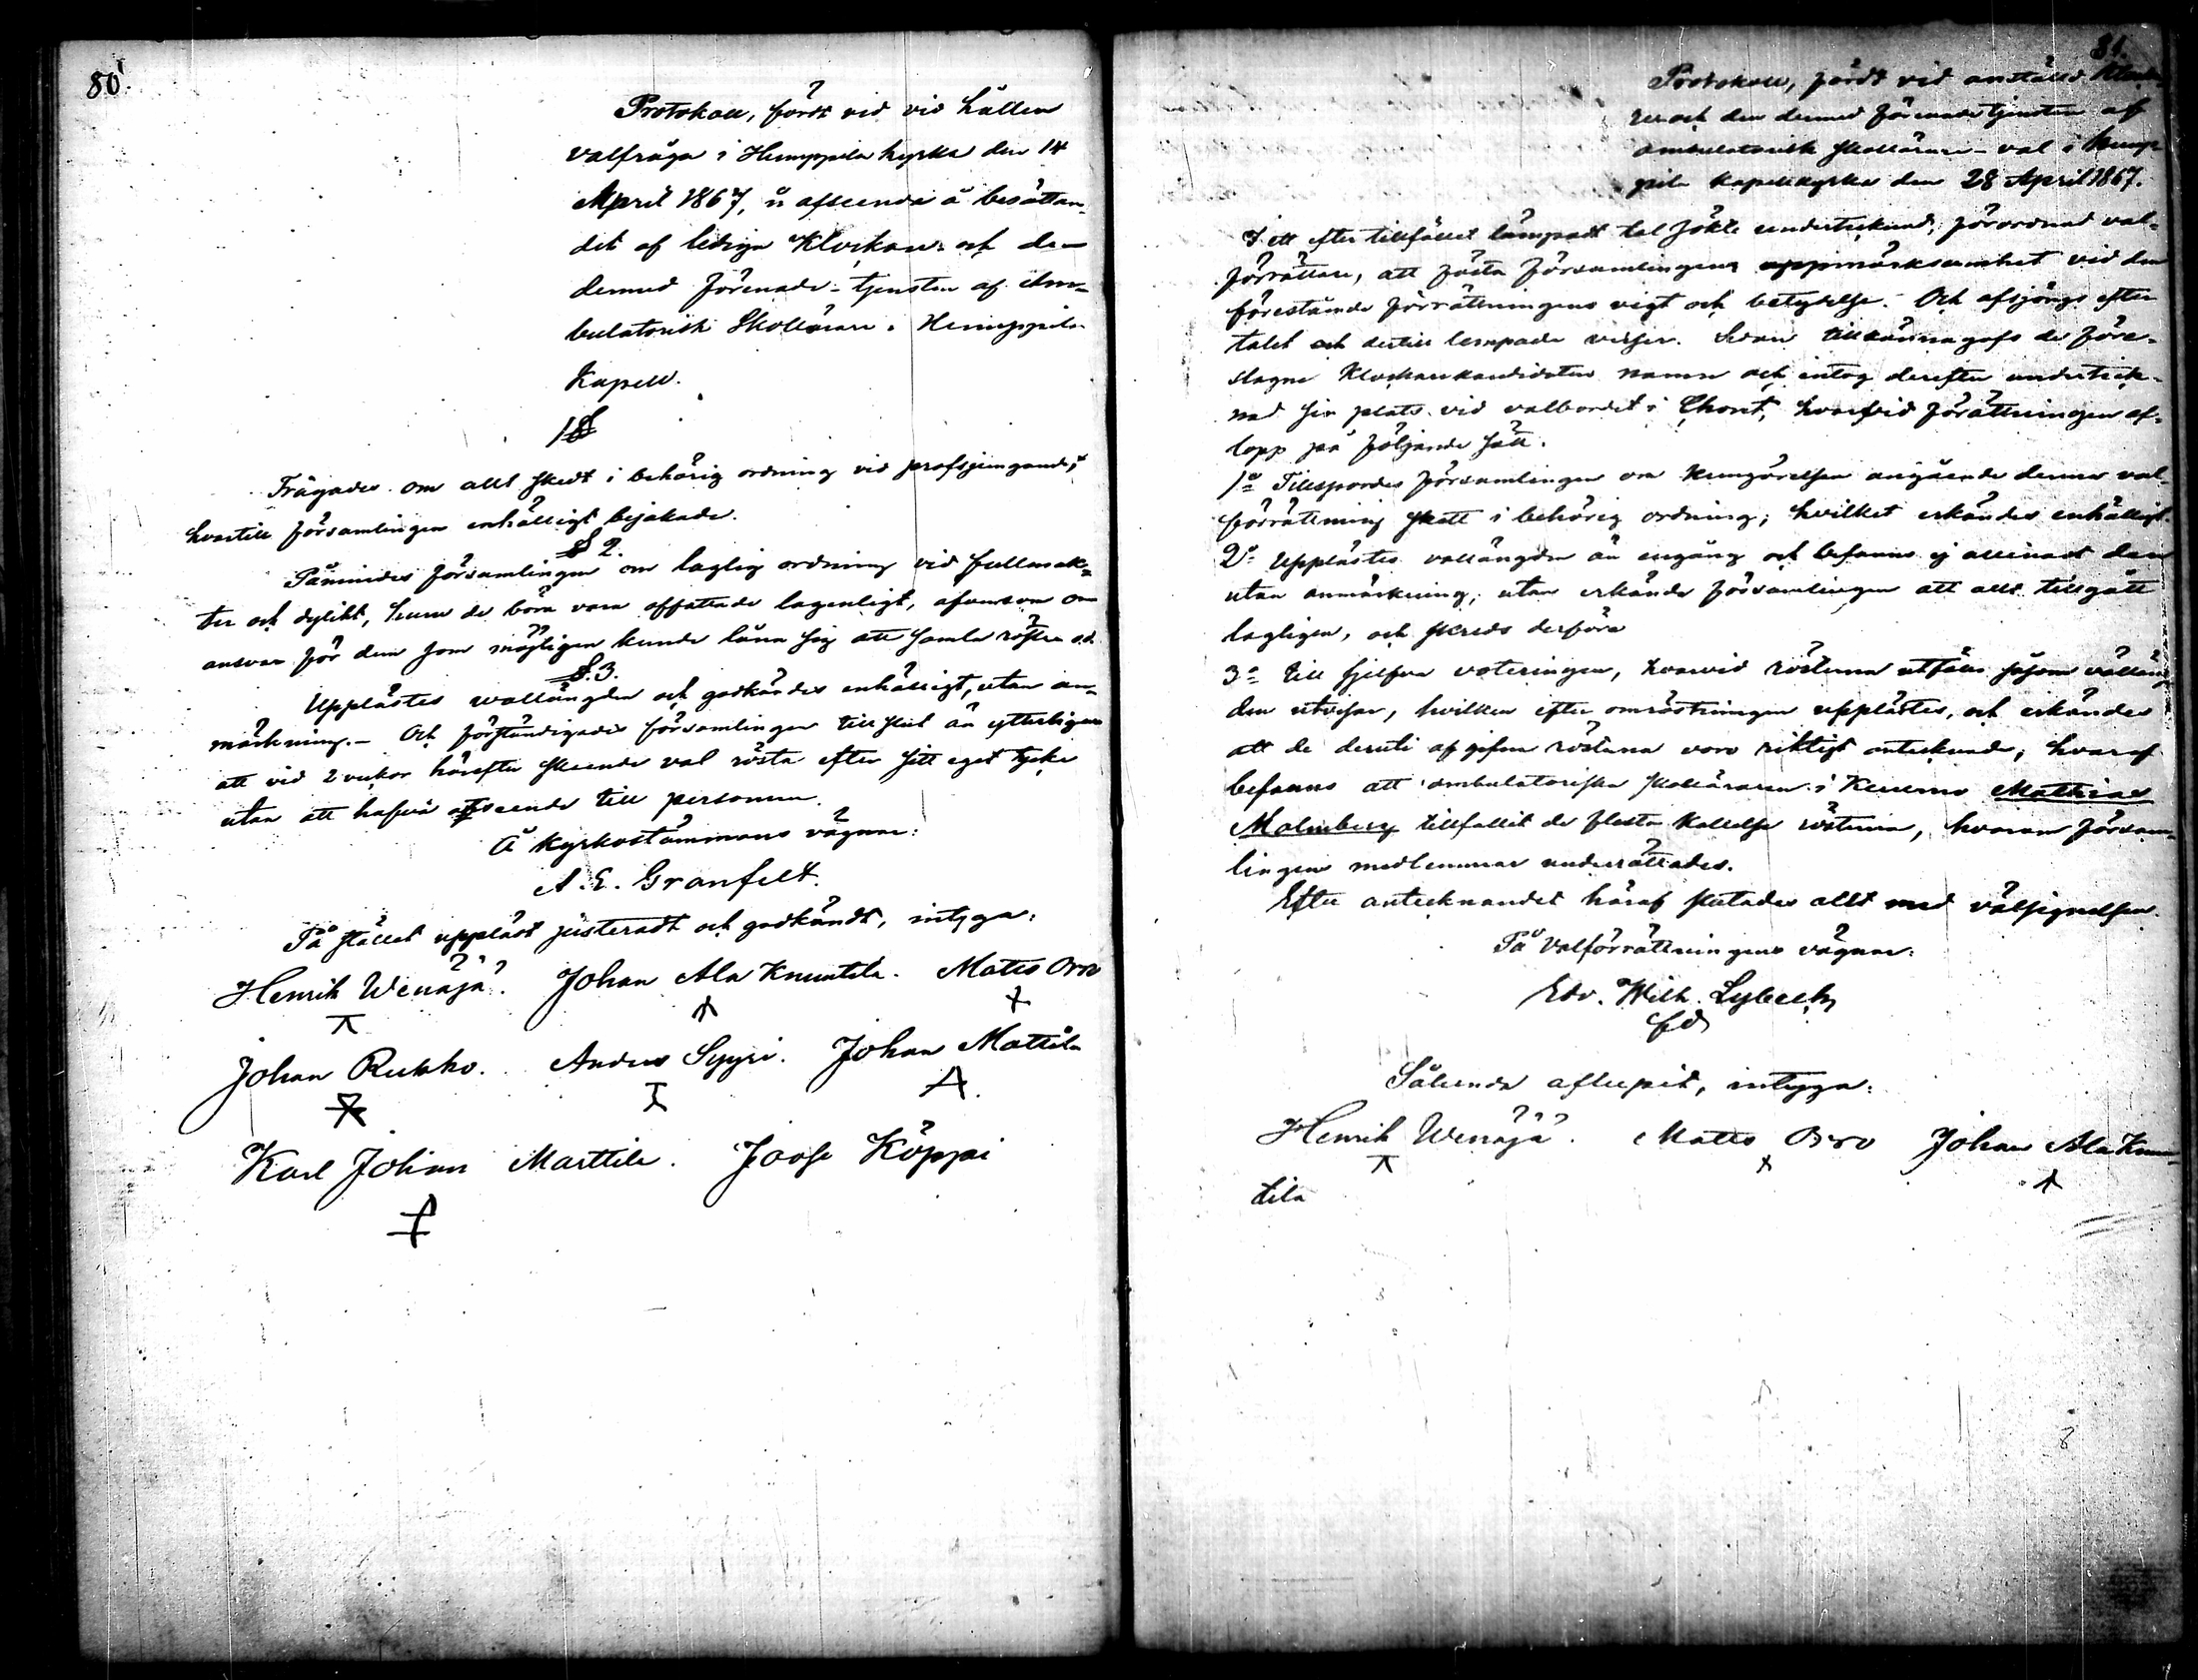 80.
Protokoll, fördt vid vid hållen
valfråga i Humppila kyrka den 14
April 1867, i afseende å besättan-
det af lediga Klockare- och den
dermed förenade tjensten af Am-
bulatorisk Skollärare i Humppila
Kapell.
1 §
Frågades om allt skedt i behörig ordning vid profsjungande,
hvartill församlingen enhälligt bejakade.
§ 2.
Påmindes församlingen om laglig ordning vid fullmak-
ter och dylikt, huru de böra vara affattade lagenligt, äfvensom om
ansvar för dem som möjligen kunde låna sig att samla röster o.d.
§. 3.
Upplästes wallängden och godkändes enhälligt, utan an-
märkning. – Och förständigades församlingen till slut än ytterligare
att vid 2 veckor härefter skeende val rösta efter sitt eget tycke
utan att hafva afseende till personen.
Å Kyrkostämmans vägnar:
A. E. Granfelt.
På stället uppläst justeradt och godkändt, intyga:
Henrik Wenäjä. Johan Ala Knuutila. Matts Orro
Johan Rukko. Anders Syyri. Johan Mattila
Karl Johan Marttila. Joose Köppi
81.
Protokoll, fördt vid anstäld Klocka-
re- och den dermed förenade tjensten af
ambulatorisk skollärare-val i Hump-
pila Kapellkyrka den 28 April 1867.
I ett efter tillfället lämpadt tal sökte undertecknad, förordnad val-
förrättare, att fästa församlingens uppmärksamhet vid den
förestående förrättningens vigt och betydelse. Och afsjöngs efter
talet och dertill lempade verser. Sedan tillkännagafs de före-
slagne Klockarekandidaters namn och intog derefter underteck-
nad sin plats vid valbordet i Choret, hvarvid förättningen af-
lopp på följande sätt.
1o Tillspordes församlingen om kungörelsen angående denna val-
förrättning skett i behörig ordning; hvilket erkändes enhälligt.
2o Upplästes vallängden än engång och befanns ej allenast den
utan anmärkning, utan erkände församlingen att allt tillgått
lagligen, och skreds derföre
3o till sjelfva voteringen, hvarvid rösterna utföllo såsom vallän-
den utvisar, hvilken efter omröstningen upplästes, och erkändes
att de deruti afgifna rösterna voro riktigt antecknade, hvaraf
befanns att ambulatoriska skolläraren i Mathias
Malmberg tillfallit de flesta kallelse rösterna, hvarom försam-
lingens medlemmar underrättades.
Efter antecknandet häraf slutades allt med välsignelsen.
På Valförrättningens vägnar:
Edv. Wilh. Lybeck
Sålunda aflupit, intyga:
Henrik Wenäjä. Matts Orro Johan Ala Knuu-
tila